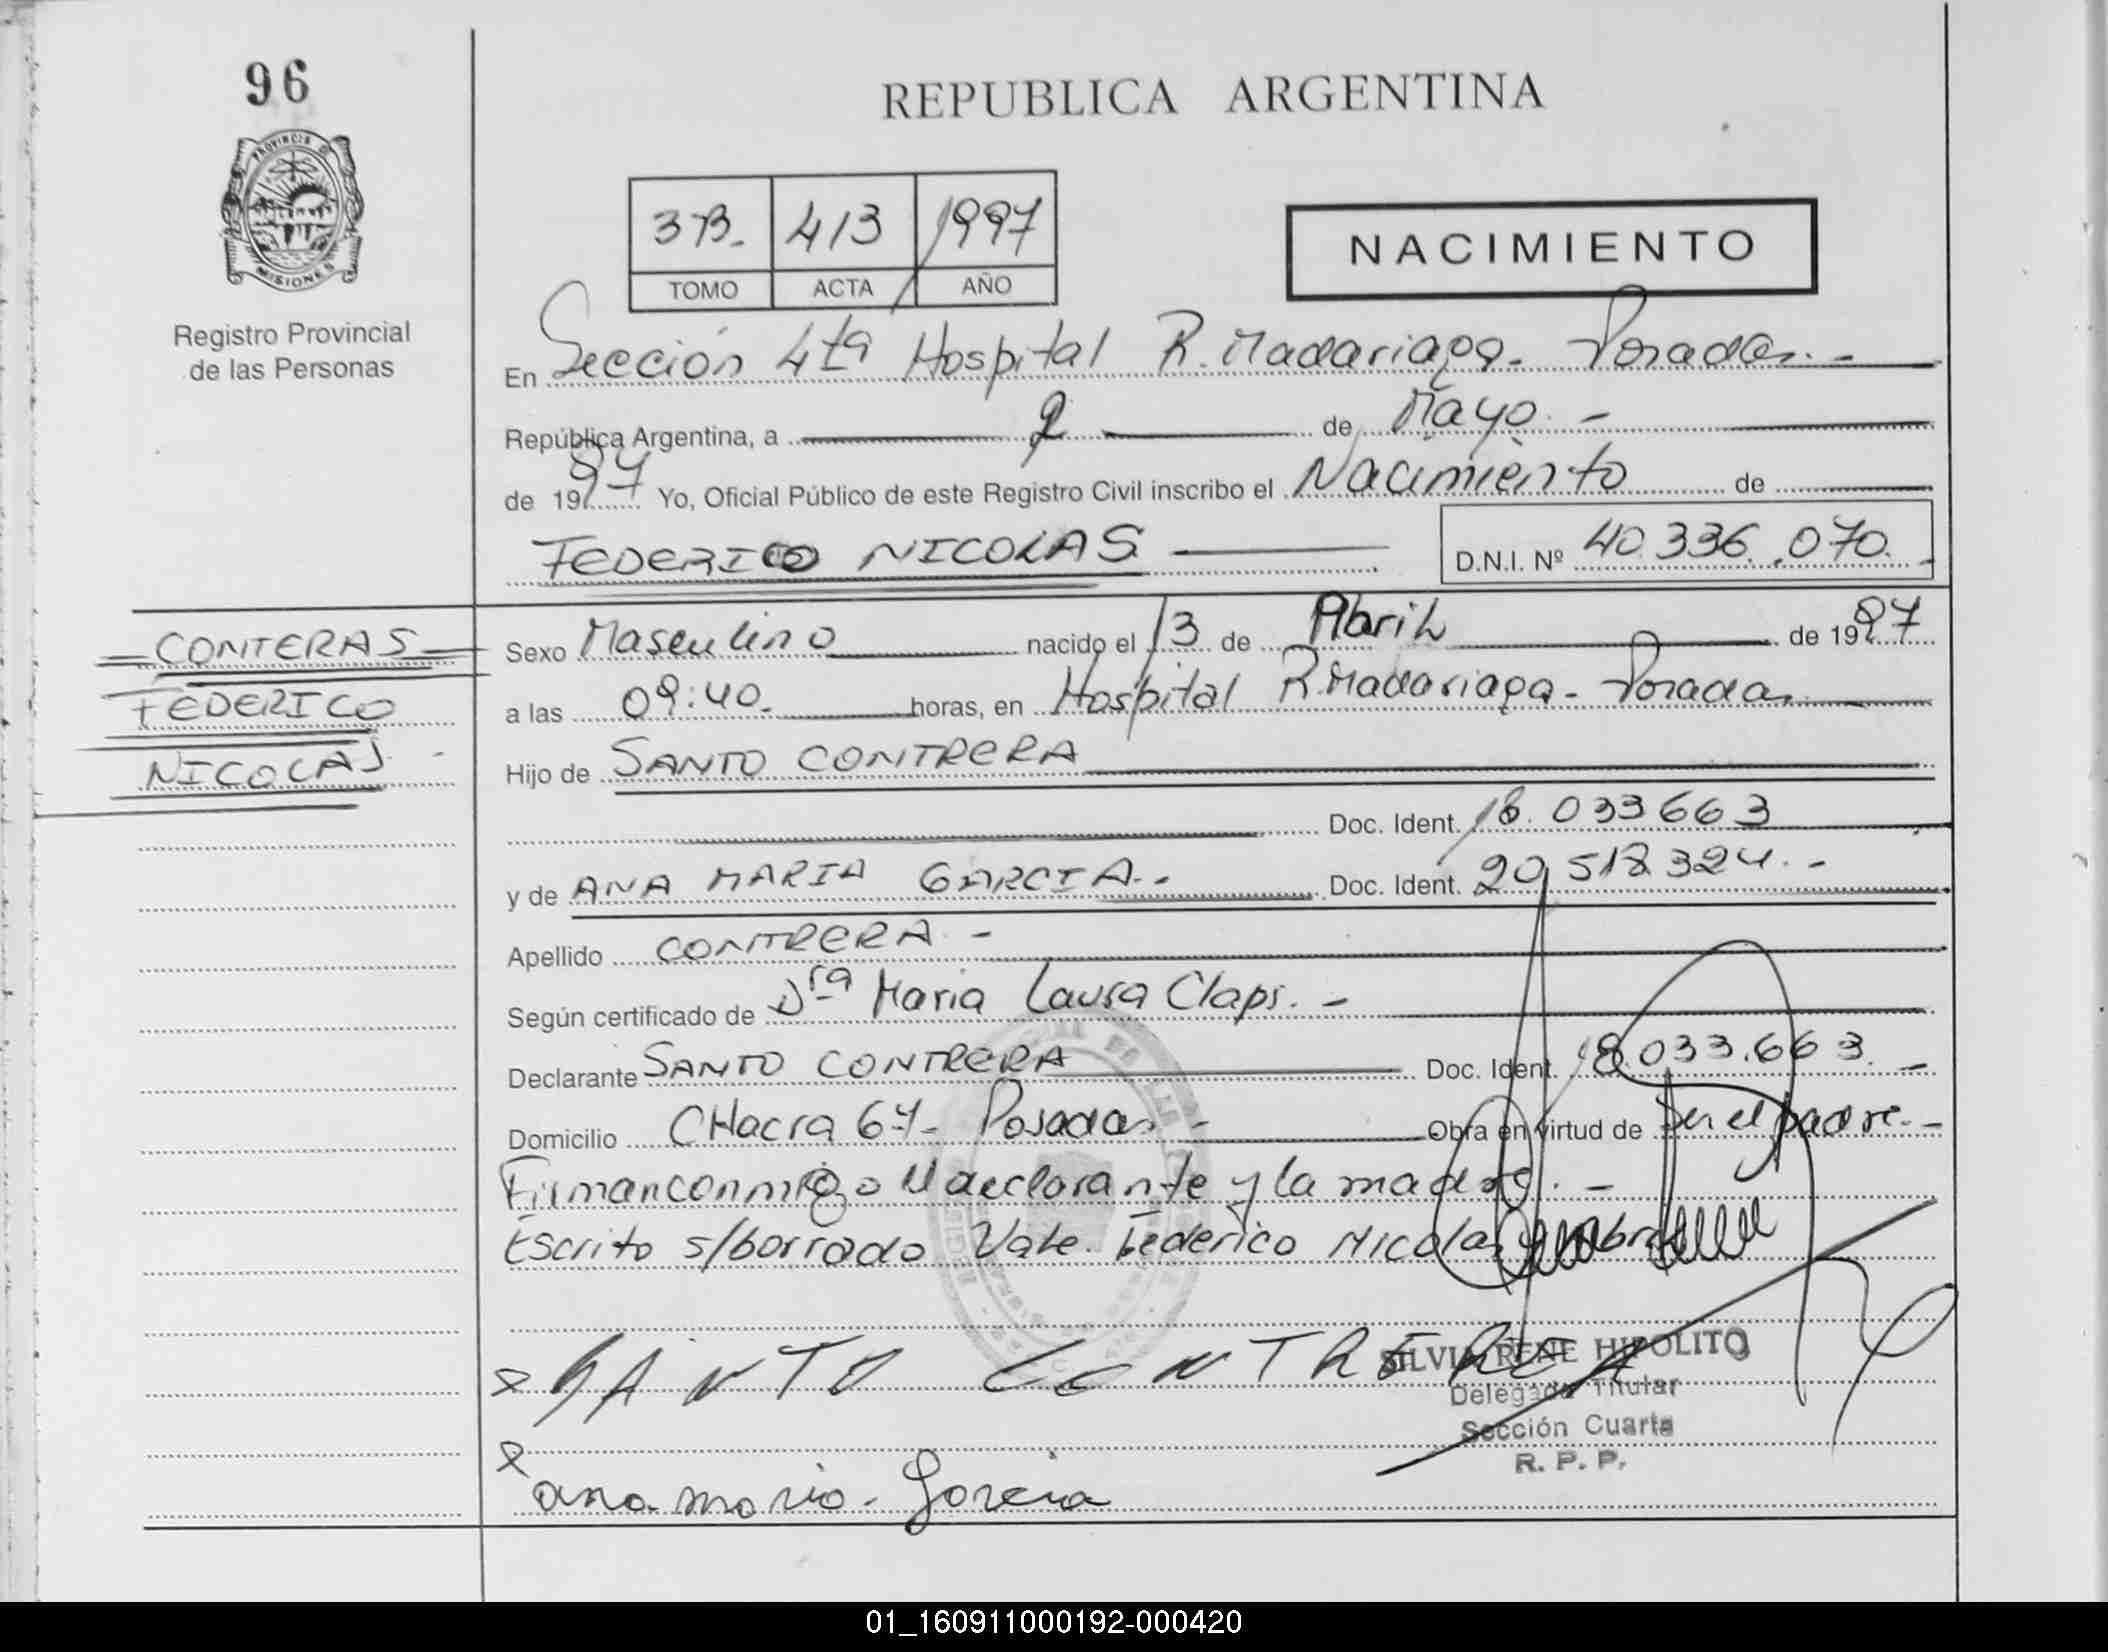 96
REPUBLICA ARGENTINA
PROVINCIA DE
MISIONES
Registro Provincial
de las Personas
3B. 413 1997
TOMO ACTA AÑO
NACIMIENTO
En Sección 4ta Hospital R. Madariaga - Posadas. -
República Argentina, a 2 de Mayo. -
de 1997 Yo, Oficial Público de este Registro Civil inscribo el Nacimiento de
FEDERICO NICOLAS
D.N.I. Nº 40.336.070.
CONTERAS
FEDERICO
NICOLAS. -
Sexo Masculino nacido el 13 de Abril de 1997
a las 09:40. horas, en Hospital R. Madariaga - Posadas
Hijo de SANTO CONTRERA
Doc. Ident. 18.033663
y de ANA MARIA GARCIA.. Doc. Ident. 20.518324. -
Apellido CONTRERA. -
Según certificado de Dra Maria Laura Claps. -
Declarante SANTO CONTRERA Doc. Ident. 18.033.663. -
Domicilio CHacra 67 - Posadas - Obra en virtud de Ser el padre. -
Firman conmigo el declarante y la madre. -
Escrito s/borrado Vale. Federico Nicolas
SANTO CONTRERA
SILVIA RENE HIPOLITO
Delegada Titular
Sección Cuarta
R. P. P.
ana maria. Garcia
01_160911000192-000420